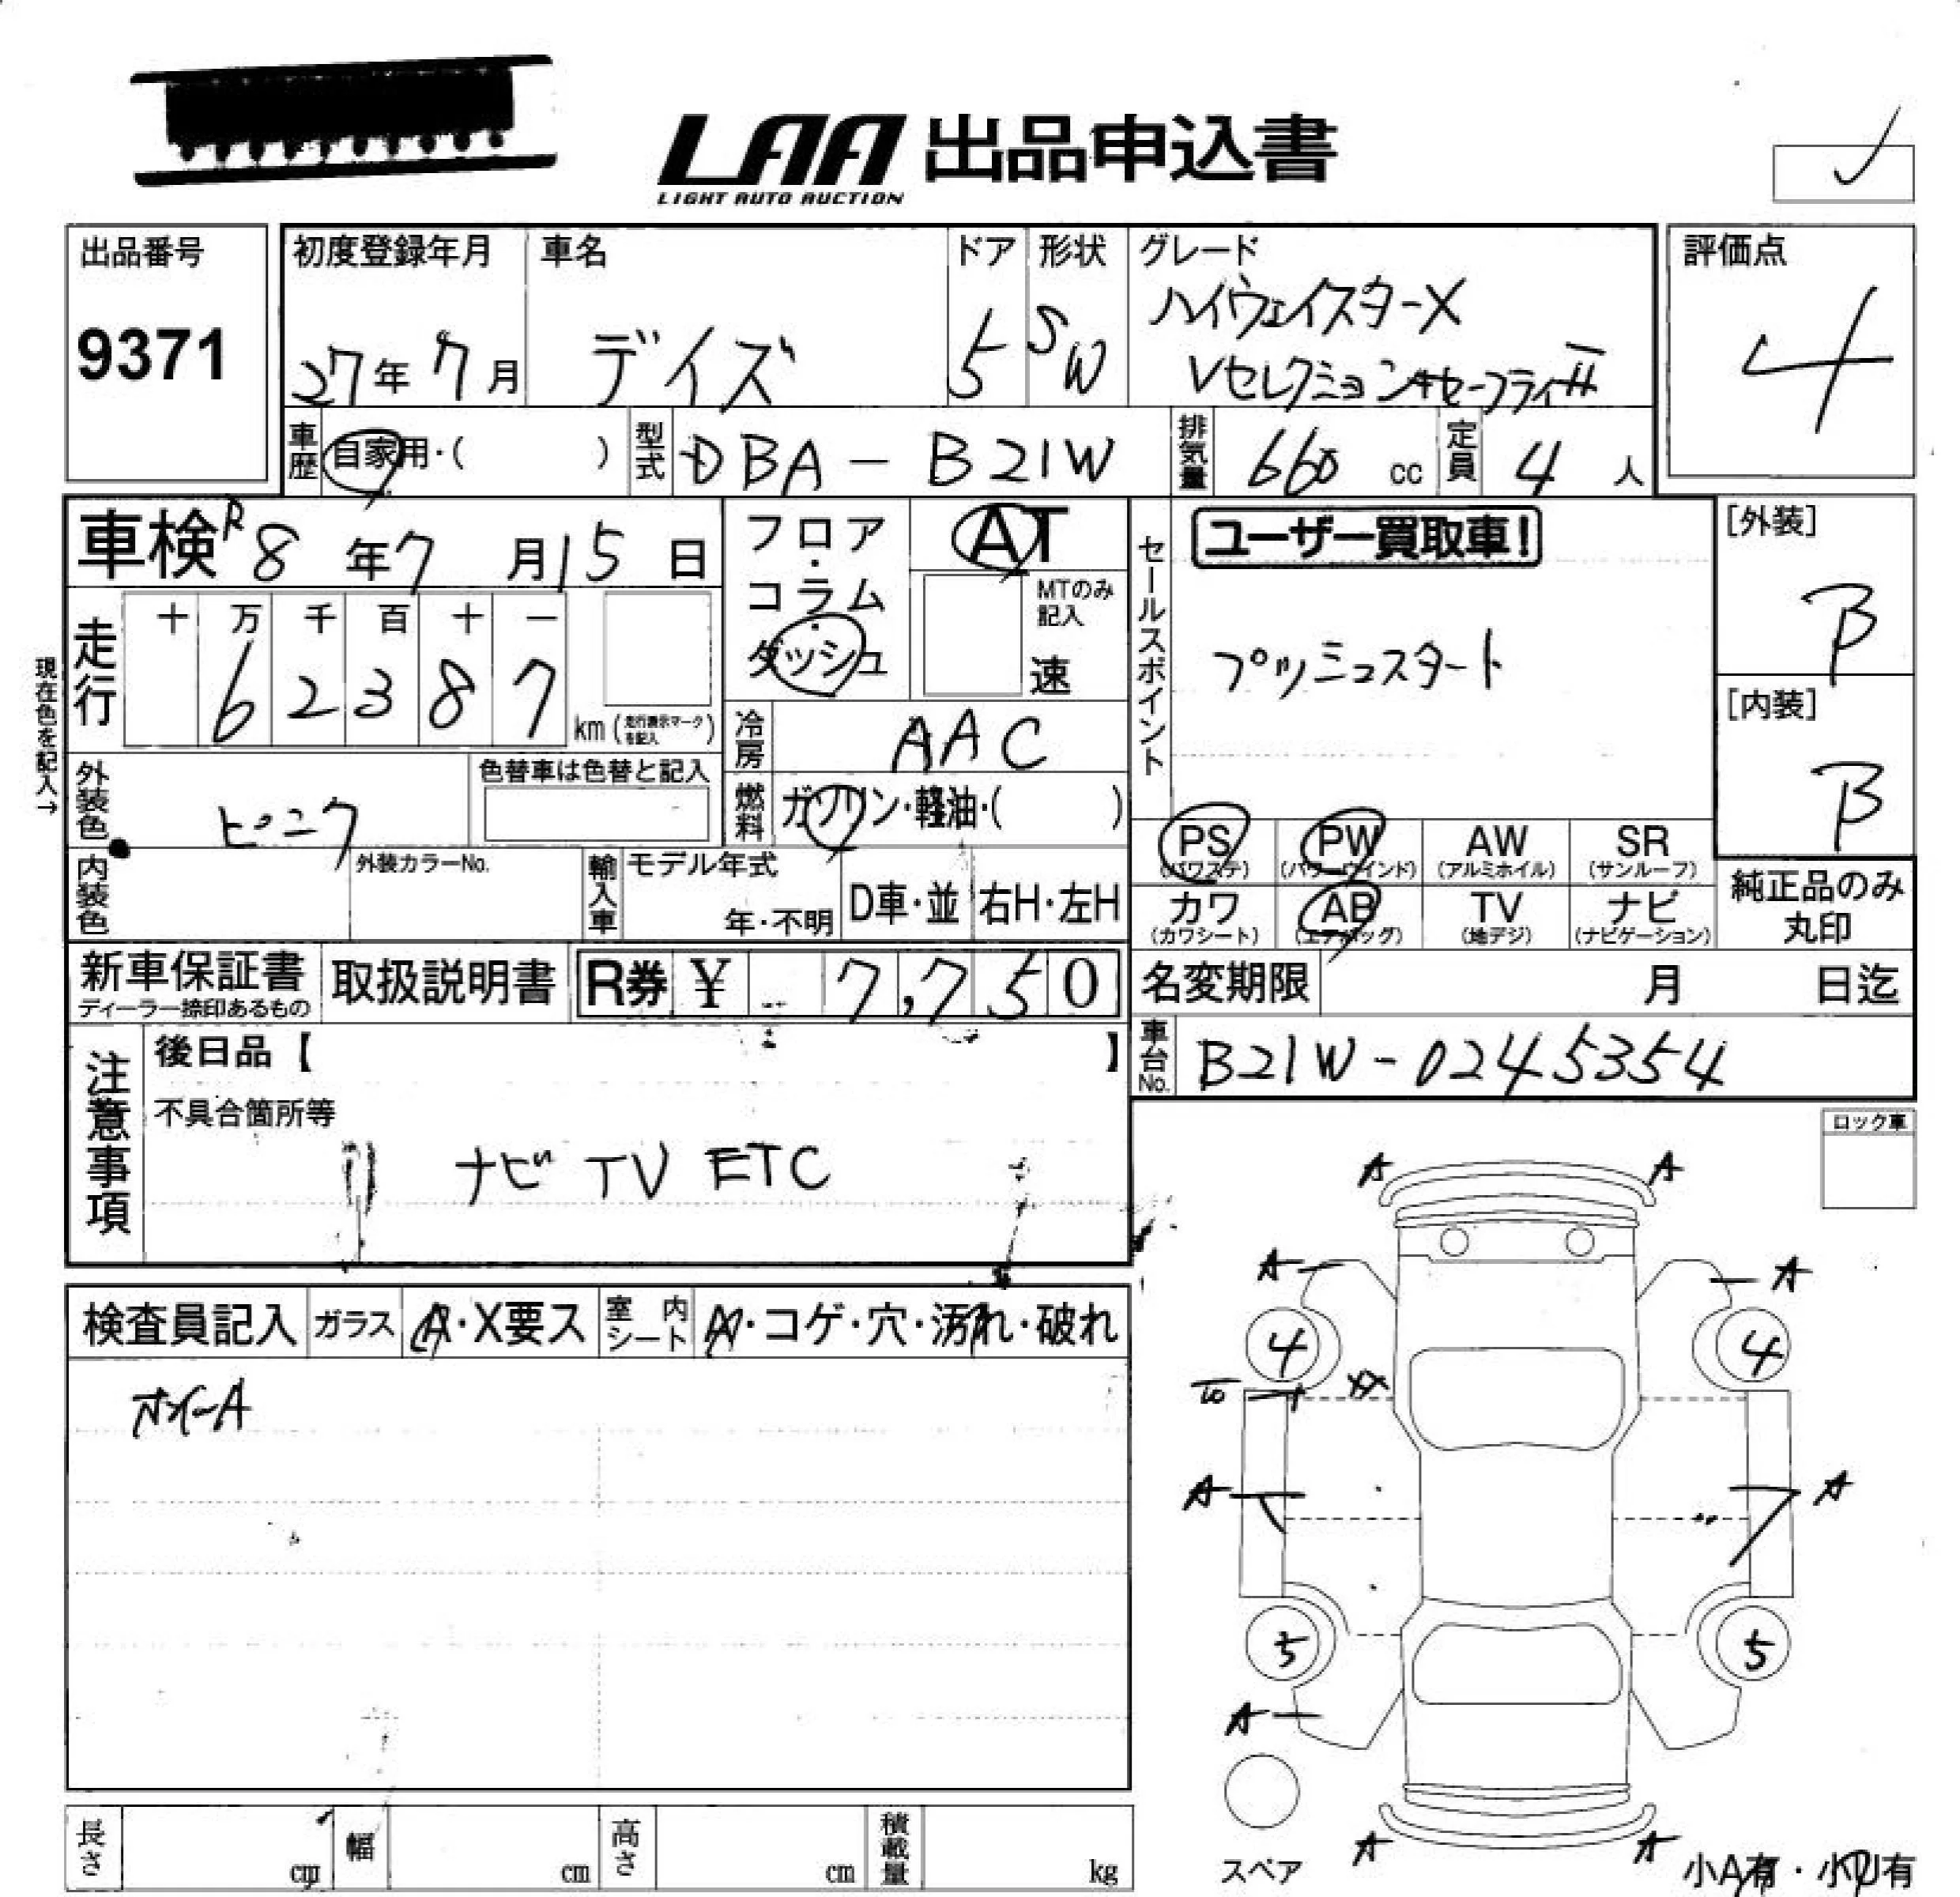 LAA 出品申込書
LIGHT AUTO AUCTION
出品番号
9371
初度登録年月
27年 7月
車名
デイズ
ドア
5
形状
SW
グレード
ハイウェイスターX
Vセレクション+セーフティII
評価点
4
車歴
自家用・( )
型式
DBA-B21W
排気量
660 cc
定員
4 人
車検 R8年7月15日
フロア・コラム・ダッシュ
AT
MTのみ記入
速
セールスポイント
ユーザー買取車!
プッシュスタート
[外装]
B
[内装]
B
現在色を記入→
走行
十 万 千 百 十 一
6 2 3 8 7
km (走行表示マークを記入)
冷房
AAC
外装色
ピンク
色替車は色替と記入
燃料
ガソリン・軽油・( )
PS (パワステ)
PW (パワーウインド)
AW (アルミホイル)
SR (サンルーフ)
カワ (カワシート)
AB (エアバッグ)
TV (地デジ)
ナビ (ナビゲーション)
純正品のみ丸印
内装色
外装カラーNo.
輸入車
モデル年式
年・不明
D車・並
右H・左H
新車保証書
ディーラー捺印あるもの
取扱説明書
R券 ¥ 7,750
名変期限 月 日迄
車台No.
B21W-0245354
注意事項
後日品【 】
不具合箇所等
ナビ TV ETC
ロック車
検査員記入
ガラス
A・X要ス
室内シート
A・コゲ・穴・汚れ・破れ
A A
A A
4 4
XX
A A
5 5
A
スペア
A A
小A有・小U有
長さ cm
幅 cm
高さ cm
積載量 kg